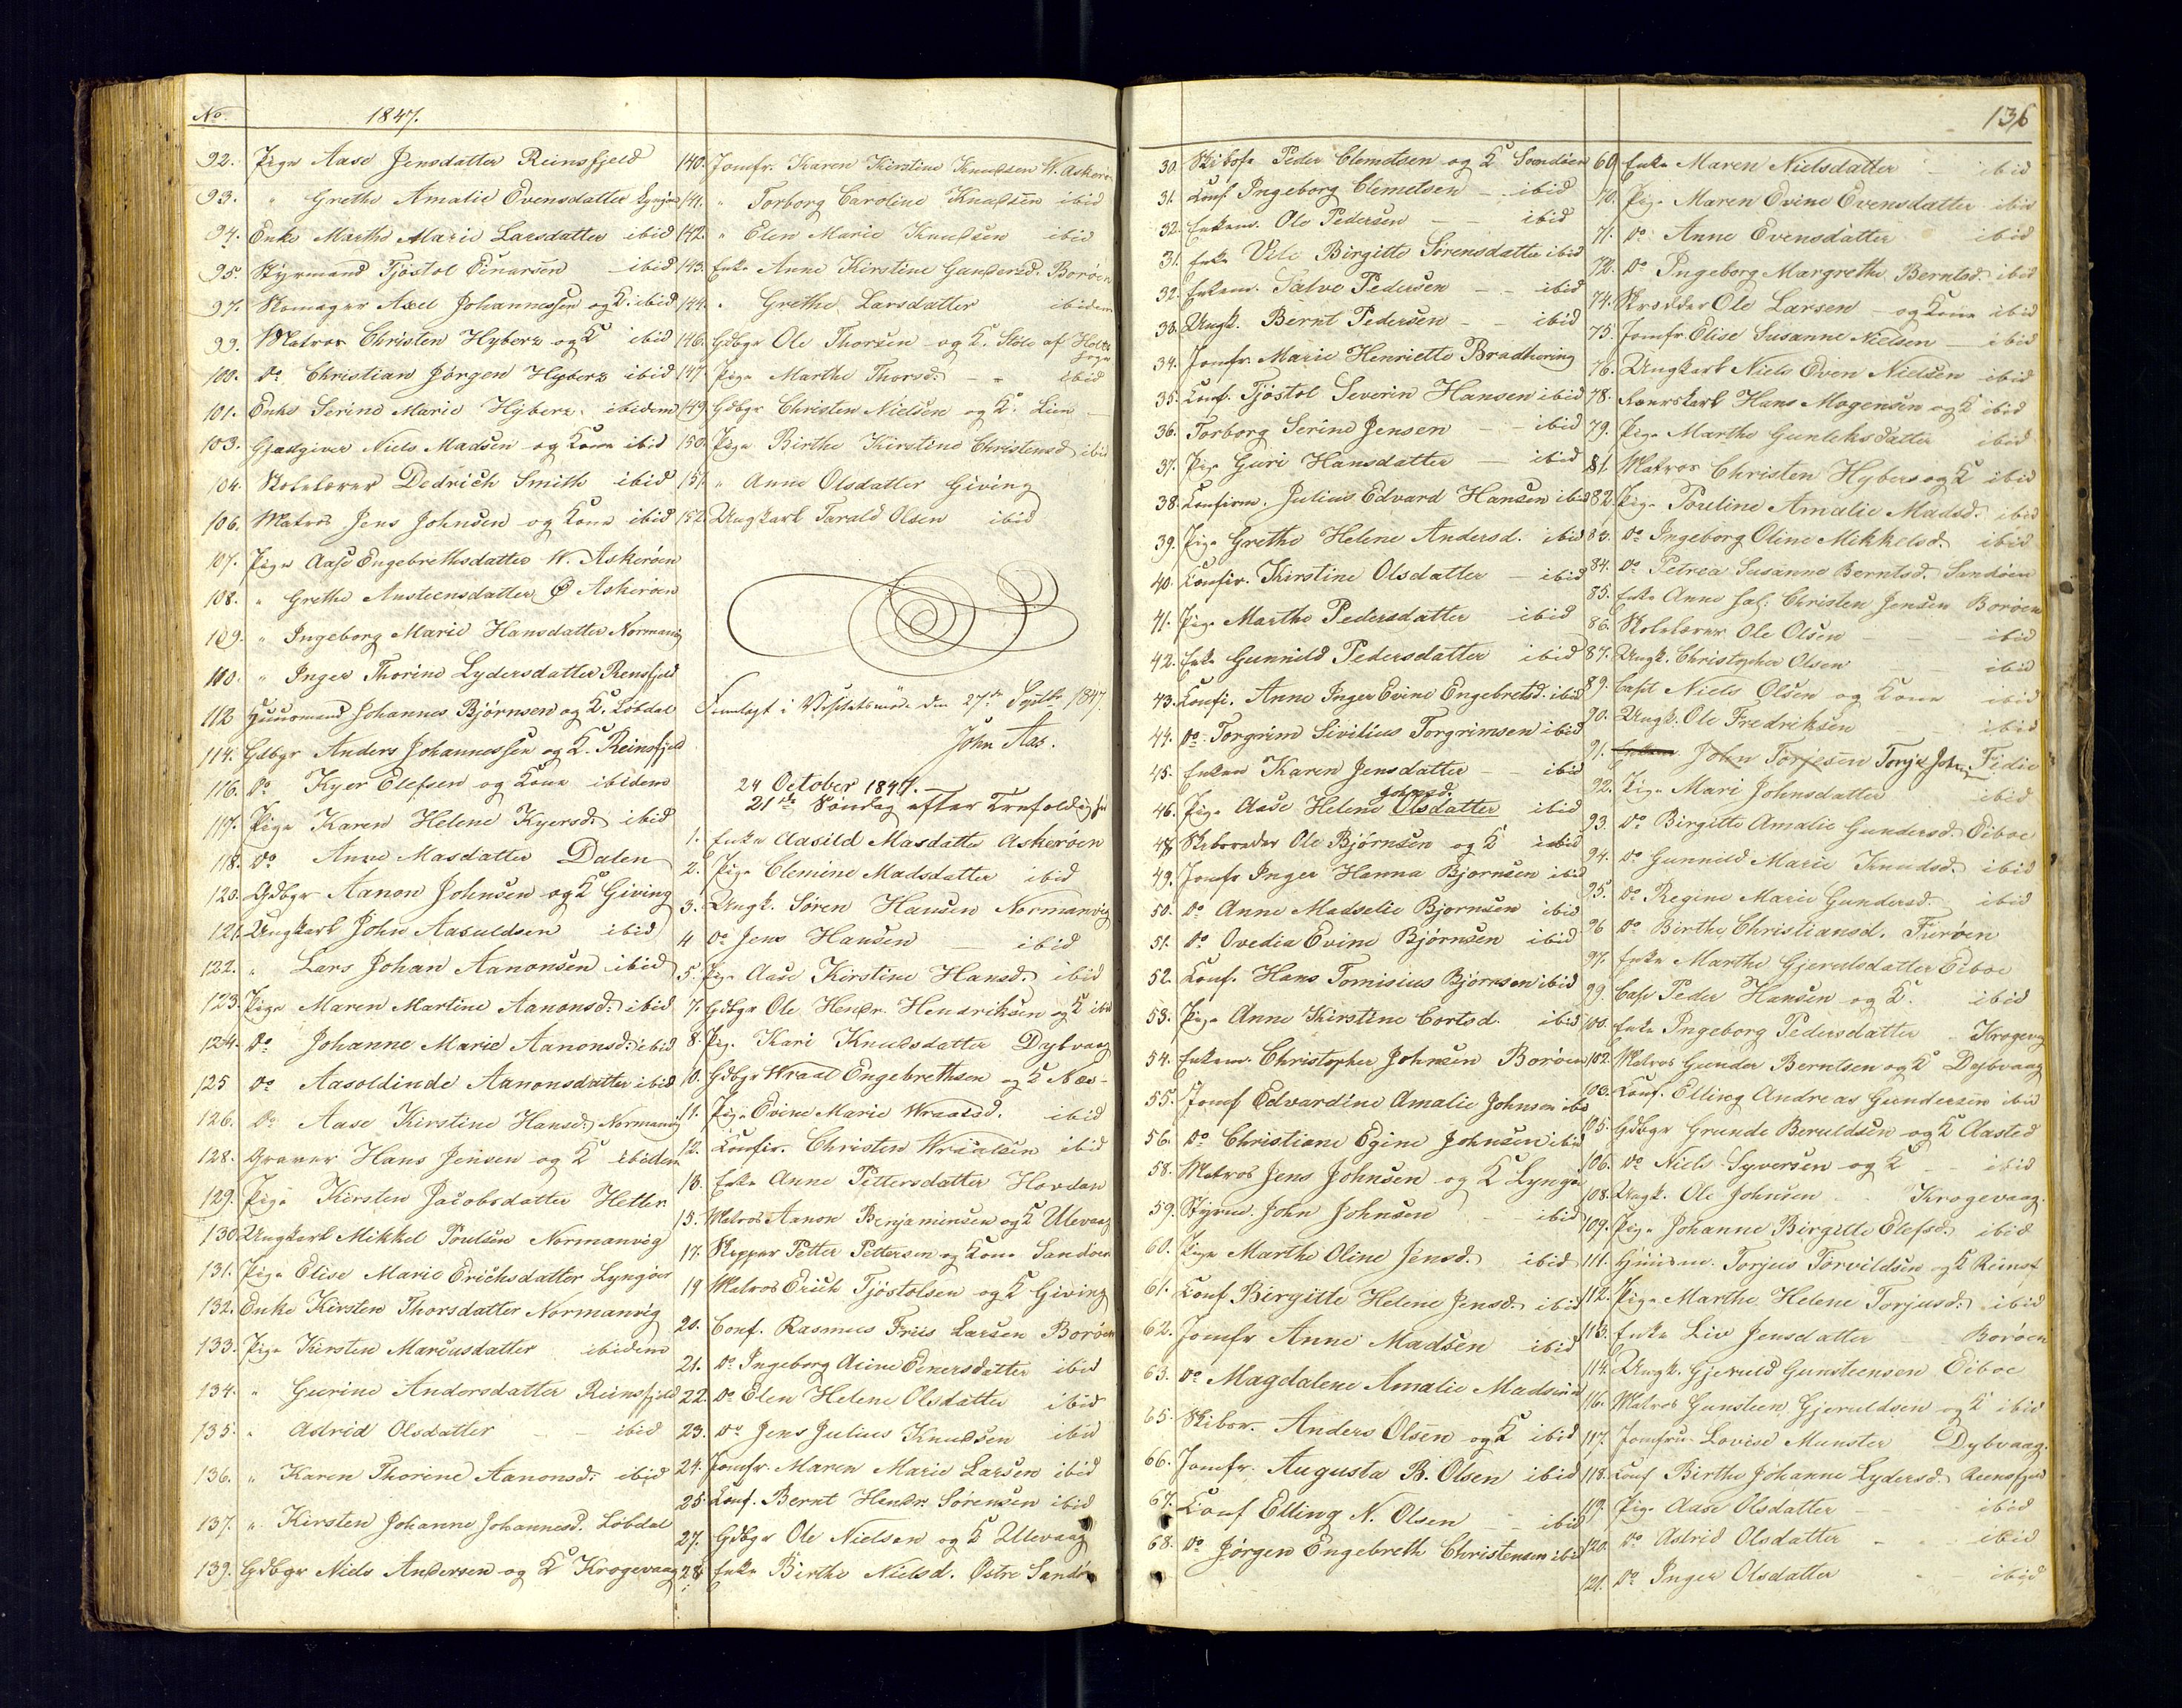 No. 1847.
92. Pige Aase Jensdatter Reinsfjeld
93. " Grethe Amalie Evensdatter Lyngør
94. Enke Marthe Marie Larsdatter ibid
95. Styrmand Tjøstol Einarsen ibid
97. Skomager Axel Johannessen og K. ibid
99. Matros Christen Hyberz og K ibid
100. Do Christian Jørgen Hyberz ibid
101. Enke Serine Marie Hyberz. ibidem
103. Gjæstgiver Niels Madsen og Kone ibid
104. Skolelærer Dedrich Smith ibid
106. Matros Jens Johnsen og Kone ibid
107. Pige Aase Engebrethsdatter W. Askerøen
108. " Grethe Austeensdatter Ø Askerøen
109. " Ingeborg Marie Hansdatter Normanvig
110. " Inger Thorine Lydersdatter Rensfjeld
112 Huusmand Johannes Bjørnsen og K. Løbdal
114. Gdbgr Anders Johannessen og K. Reinsfjeld
116. Do Kyer Elefsen og Kone ibidem
117. Pige Karen Helene Kyersd. ibid
118. Do Anne Masdatter Dalen
120. Gdbgr Aanon Johnsen og K Giving
121. Ungkarl John Aasuldsen ibid
122. " Lars Johan Aanonsen ibid
123. Pige Maren Martine Aanonsd: ibid
124. Do Johanne Marie Aanonsd: ibid
125 Do Aasoldinde Aanonsdatter ibid
126. Do Aase Kirstine Hansd: Normanvig
128. Graver Hans Jensen og K ibidem
129. Pige Kirsten Jacobsdatter Hetler
130. Ungkarl Mikkel Poulsen Normanvig
131. Pige Elise Marie Erichsdatter Lyngøer
132. Enke Kirsten Thorsdatter Normanvig
133. Pige Kirsten Marcusdatter ibidem
134. " Gurine Andersdatter Reinsfjeld
135. " Astrid Olsdatter - - ibid
136. " Karen Thorine Aanonsd: ibid
137. " Kirsten Johanne Johannesd. Løbdal
139. Gdbgr Niels Andersen og K Krogevaag
140. Jomfr. Karen Kirstine Knudsen W. Askerøe
141. " Torborg Caroline Knudsen ibid
142. " Elen Marie Knudsen ibid
143. Enke Anne Kirstine Gundersd. Borøen
144. " Grethe Larsdatter ibidem
146. Gdbgr Ole Thorsen og K. Støle af Holts Sogn
147 Pige Marthe Thorsd: - - ibid
149. Gdbgr Christen Nielsen og K. Lien -
150. Pige Birthe Kirstine Christensd. ibid
151. " Anne Olsdatter Giving
152. Ungkarl Tarald Olsen ibid
Fremlagt i Visitatsmøde den 27de Septb. 1847.
John Aas.
24 October 1847. -
21de Søndag efter Trefoldighed
1. Enke Aasild Masdatter Askerøen
2. Pige Clemine Madsdatter ibid
3. Ungk. Søren Hansen Normanvig
4 Do Jens Hansen - ibid
5. Pige Aase Kirstine Hansd: ibid
7. Gdbgr Ole Hendr. Hendriksen og K ibid
8. Pig. Kari Knudsdatter Dybvaag
10. Gdbgr Wraal Engebrethsen og K Næs-
11. Pige Evine Marie Wraalsd. ibid
12. Confir. Christen Wraalsen ibid
13. Enke Anne Pettersdatter Hovdan
15. Matros Aanon Benjaminsen og K Ulevaag
17. Skipper Petter Pettersen og Kone Sandøen
19 Matros Erich Tjøstolsen og K Giving
20. Conf. Rasmus Friis Larsen Borøen
21. Do Ingeborg Acine Einersdatter ibid
22. Do Elen Helene Olsdatter ibid
23. Do Jens Julius Knudsen ibid
24. Jomfr. Maren Marie Larsen ibid
25. Conf. Bernt Hendr. Sørensen ibid
27. Gdbgr Ole Nielsen og K Ulevaag
28 Enke Birthe Nielsd. Østre Sandø
136
30. Peder Clemetsen og K. Sandøen
31. Conf. Ingeborg Clemetsen - ibid
32. Enkem. Ole Pedersen - - ibid
31. Enke Birgitte Sørensdatter ibid
32. Enkem. Salve Pedersen - - ibid
33. Ungk. Bernt Pedersen - - ibid
34. Jomfr. Marie Henriette Bradhering
35. Conf. Tjøstol Severin Hansen ibid
36. Torborg Serine Jensen - - ibid
37. Pige Guri Hansdatter - ibid
38. Confirm. Julius Edvard Hansen ibid
39. Pige Grethe Helene Andersd. ibid
40. Confir. Kirstine Olsdatter - ibid
41. Pige Marthe Pedersdatter ibid
42. Enke Gunnild Pedersdatter ibid
43. Confi. Anne Inger Evine Engebretsd. ibid
44. Do Torgrim Sivilius Torgrimsen ibid
45. Enken Karen Jensdatter - - ibid
46. Pige Aase Helene Olsdatter Johnsd. ibid
48 Ole Bjørnsen og K ibid
49. Jomfr Inger Hanna Bjørnsen ibid
50. Do Anne Madselie Bjørnsen ibid
51. Do Ovedia Evine Bjørnsen ibid
52. Conf. Hans Tomisius Bjørnsen ibid
53. Pige Anne Kirstine Cortsd. ibid
54. Enkem. Christopher Johnsen Borøen
55. Jomf Edvardine Amalie Johnsen ibd
56. Do Christiane Egine Johnsen ibid
58. Matros Jens Johnsen og K Lyngø
59. Styrm. John Johnsen ibid
60. Pige Marthe Oline Jensd: ibid
61. Conf Birgitte Helene Jensd. ibid
62. Jomfr Anne Madsen ibid
63. Do Magdalene Amalie Madsen
65. Skibsr. Anders Olsen og K ibid
66. Jomfr. Augusta B. Olsen ibid
67. Conf Elling N. Olsen - - ibid
68. Do Jørgen Engebreth Christensen ibid
69 Enke Maren Nielsdatter - ibid
70. Pige Maren Evine Evensdatter ibid
71. Do Anne Evensdatter ibid
72. Do Ingeborg Margrethe Berntsd. ibid
74. Skrædder Ole Larsen - og Kone ibid
75. Jomfr Elise Susanne Nielsen - ibid
76. Ungkarl Niels Even Nielsen ibid
78. Hans Mogensen og K ibid
79. Pige Marthe Gunleksdatter ibid
81. Matros Christen Hybers og K ibid
82. Pige Pouline Amalie Madsd. ibid
83. Do Ingeborg Oline Mikkelsd. ibid
84. Do Petrea Susanne Berntsd. Sandøen
85. Enke Anne sal: Christen Jensen Borøen
86. Skolelærer Ole Olsen - - - ibid
87. Ungk. Christopher Olsen ibid
89. Capt Niels Olsen og Kone ibid
90. Ungk. Ole Fredriksen ibid
91. John Torjesen Torje John Fedie
92. Pige Mari Johnsdatter ibid
93. Do Birgitte Amalie Gundersd. Eiboe
94. Do Gunnild Marie Knudsd. ibid
95. Do Regine Marie Gundersd. - ibid
96 Do Birthe Christiansd. Furøen
97. Enke Marthe Gjeruldsdatter Eiboe
99. Cap Peder Hansen og K. ibid
100. Enke Ingeborg Pedersdatter Krogevig
102. Matros Gunder Berntsen og K Dybvaag
103. Conf. Elling Andreas Gundersen ibid
105. Gdbgr Grunde Beruldsen og K Aasted
106. Do Niels Syversen og K - - ibid
108. Ungk. Ole Johnsen Krogevaag.
109. Pige Johanne Birgitte Elefsd. ibid
111. Huusm. Torjus Torvildsen og K Reinsf
112. Pige Marthe Helene Torjusd: ibid
113. Enke Liv Jensdatter Borøen
114. Ungk. Gjeruld Gunsteensen Eiboe
116. Matros Gunsteen Gjeruldsen og K ibid
117. Jomfru Lovise Munster Dybvaag.
118. Conf Birthe Johanne Lydersd. Reensfjeld
119. Pige Aase Olsdatter - ibid
120. Do Astrid Olsdatter - - ibid
121. Do Inger Olsdatter - - ibid